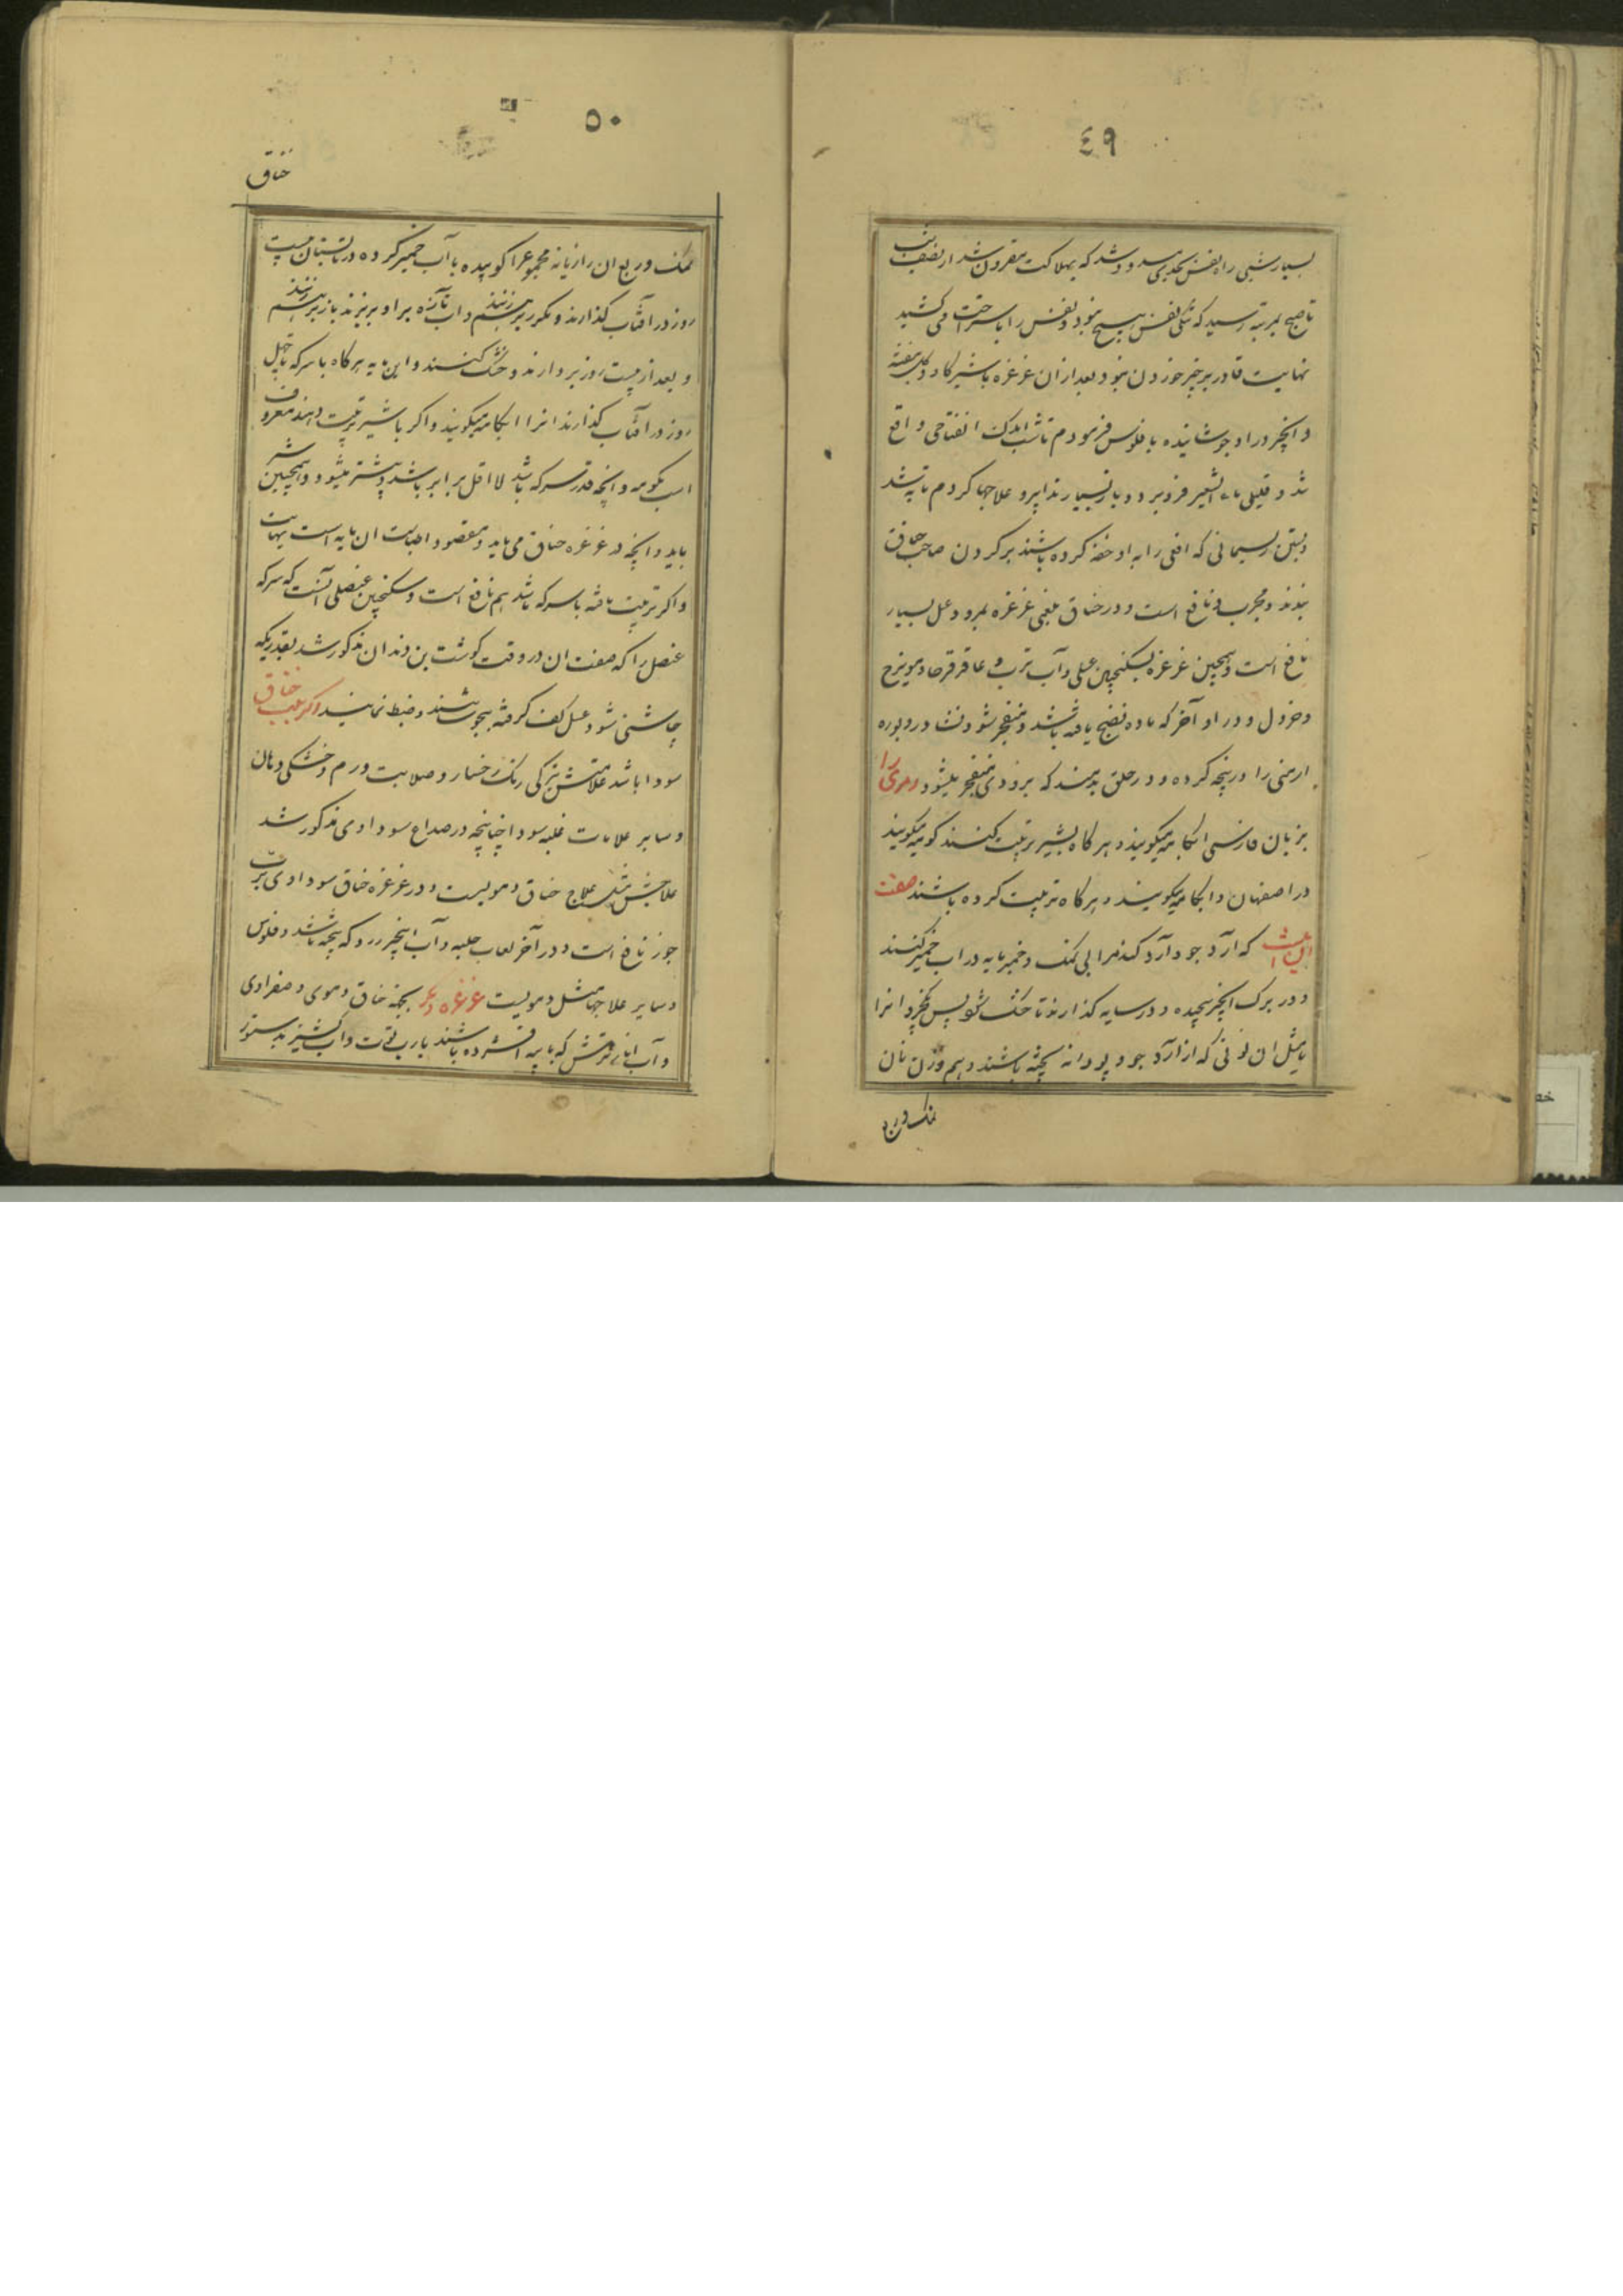 ٤٩
بسیار شبی راه نفس بحدی مسدود شد که بهلاکت مقرون شد از نصف شب
تا صبح بمرتبه رسید که تنگی نفس هیچ نبود و نفس را باستراحت می کشید
نهایت قادر بر چیز خوردن نبود بعد از ان غرغره باشیر کاو و کل بنفشه
و انجیر در او جوشانیده با فلوس فرمودم تا شب اندک انفتاحی واقع
شد و قلیلی ماء الشعیر فرو برد و بار بسیار تدابیر و علاجها کردم تا به شد
و بستن ریسمانی که افعی را به او خفه کرده باشند بر کردن صاحب خناق
بندند و مجرب و نافع است و در خناق بلغمی غرغره بمرو و عسل بسیار
نافع است و همچنین غرغره بسکنجبین عسلی و آب ترب و عاقرقرحا و مویزج
و خردل و در او آخر که ماده نضج یافته باشد و منفجر نشود نشادر و بوره
ارمنی را در پنجه کرده و در حلق بدمند که بزودی منفجر میشود و مری را
بزبان فارسی ابکامه میکویند و هر کاه بشیر تربیت کنند کومه میکویند
در اصفهان و ابکامه میکویند و هر کاه تربیت کرده باشند صفت
این است که آرد جو و آرد کندم را بی نمک و خمیر مایه در اب خمیر کنند
و در برک انجیر پیچیده و در سایه کذارند تا خشک شود پس بکیرد انرا
با مثل ان نونی که از آرد جو و پودانه پخته باشند و هم وزن نان
نمک و ربع
٥٠
خناق
نمک و ربع ان رازیانه مجموع را کوبیده با آب خمیر کرده در تابستان بیست
روز در افتاب کذارند و مکرر بر هم زنند و اب تازه بر او بریزند باز بر هم زنند
و بعد از بیست روز بردارند و خشک کنند و این مایه هر کاه با سرکه تا چهل
روز در افتاب کذارند انرا ابکامه میکویند و اکر با شیر تربیت دهند معروف
است بکومه و انچه قدر سرکه باشد لا اقل برابر باشد و بیشتر میشود و همچنین شیر
باید و انچه در غرغره خناق می باید و مقصود اطباست ان مایه است تنهایت
و اکر تربیت یافته با سرکه باشد هم نافع است و سکنجبین عنصلی آنست که سرکه
عنصل را که صفت ان در وقت کوشت بن دندان مذکور شد بقدریکه
چاشنی شود عسل کف کرفته بجوشانند و ضبط نمایند اکر سبب خناق
سودا باشد علامتش تیرکی رنک رخسار و صلابت ورم و خشکی دهان
و سایر علامات غلبه سودا چنانچه در صداع سوداوی مذکور شد
علاجش مثل علاج خناق دمویست و در غرغره خناق سوداوی رب
جوز نافع است و در آخر لعاب حلبه و آب انجیر زرد که پخته باشند و فلوس
و سایر علاجها مثل دمویست غرغره دیگر بجهة خناق دموی و صفراوی
و آب انار ترش که با پیه افشرده باشند با رب توت و آب کشنیز بدستور